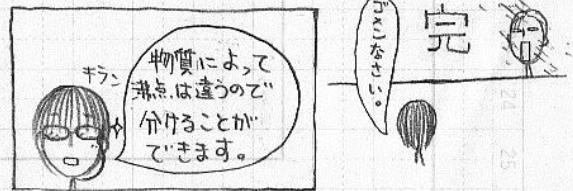 キラン
物質によって
沸点は違うので
分けることが
できます。
ゴメンなさい。
完